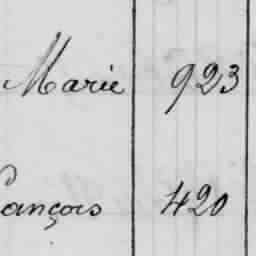 Marie 923
ançois 420